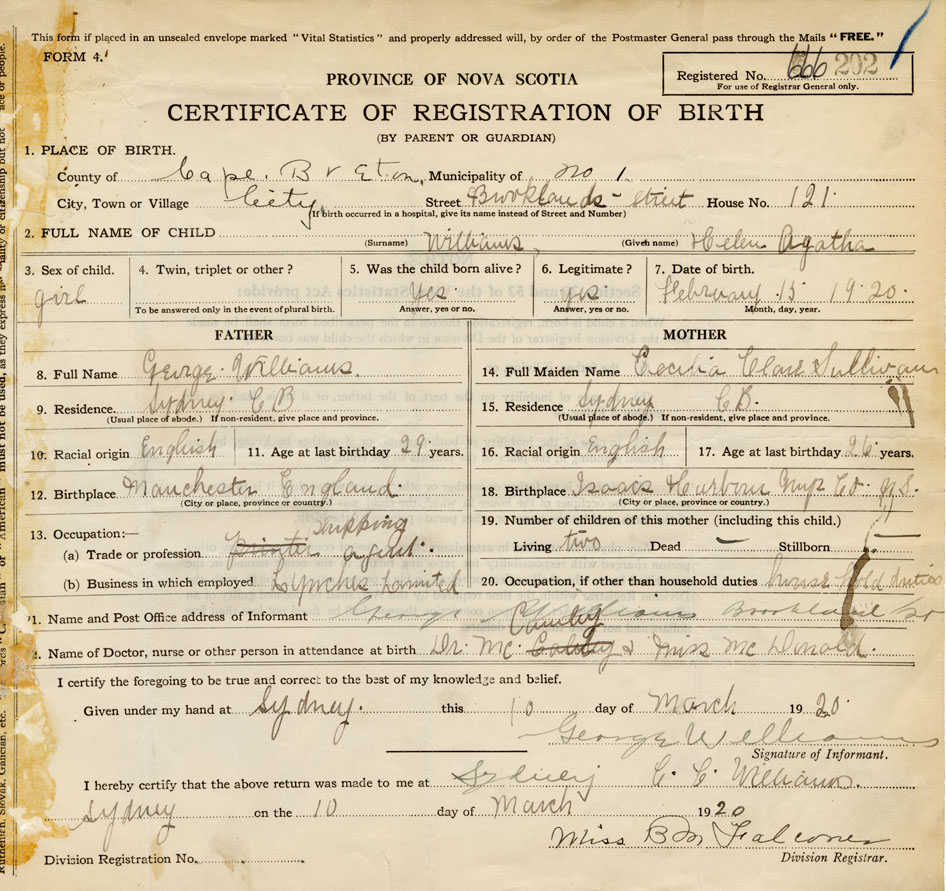 This form if placed in an unsealed envelope marked "Vital Statistics" and properly addressed will, by order of the Postmaster General pass through the Mails "FREE."
FORM 4.
Registered No. 666 202
For use of Registrar General only.
PROVINCE OF NOVA SCOTIA
CERTIFICATE OF REGISTRATION OF BIRTH
(BY PARENT OR GUARDIAN)
1. PLACE OF BIRTH.
County of Cape. Breton, Municipality of No 1
City, Town or Village City Street Brooklands - street House No. 121.
(If birth occurred in a hospital, give its name instead of Street and Number)
2. FULL NAME OF CHILD (Surname) Williams (Given name) Helen Agatha
3. Sex of child. 4. Twin, triplet or other? 5. Was the child born alive? 6. Legitimate? 7. Date of birth.
girl Yes. yes. February 15 1920.
To be answered only in the event of plural birth. Answer, yes or no. Answer, yes or no. Month, day, year.
FATHER MOTHER
8. Full Name George Williams.
9. Residence Sydney C B
(Usual place of abode.) If non-resident, give place and province.
10. Racial origin English 11. Age at last birthday 29 years.
12. Birthplace Manchester England.
(City or place, province or country.)
13. Occupation:— shipping
(a) Trade or profession printer agent.
(b) Business in which employed Lynches Limited
14. Full Maiden Name Cecilia Clare Sullivan
15. Residence Sydney C B.
(Usual place of abode.) If non-resident, give place and province.
16. Racial origin English 17. Age at last birthday 26 years.
18. Birthplace Isaacs Harbour Guys Co. N.S.
(City or place, province or country.)
19. Number of children of this mother (including this child.)
Living two Dead — Stillborn —
20. Occupation, if other than household duties house hold duties
21. Name and Post Office address of Informant George Williams Brookland St
22. Name of Doctor, nurse or other person in attendance at birth Dr. Mc & Miss Mc Donald.
I certify the foregoing to be true and correct to the best of my knowledge and belief.
Given under my hand at Sydney. this 10 day of March 1920.
George Williams
Signature of Informant.
I hereby certify that the above return was made to me at Sydney C. C. Williams.
Sydney on the 10 day of March 1920
Miss B M Falconer
Division Registrar.
Division Registration No.